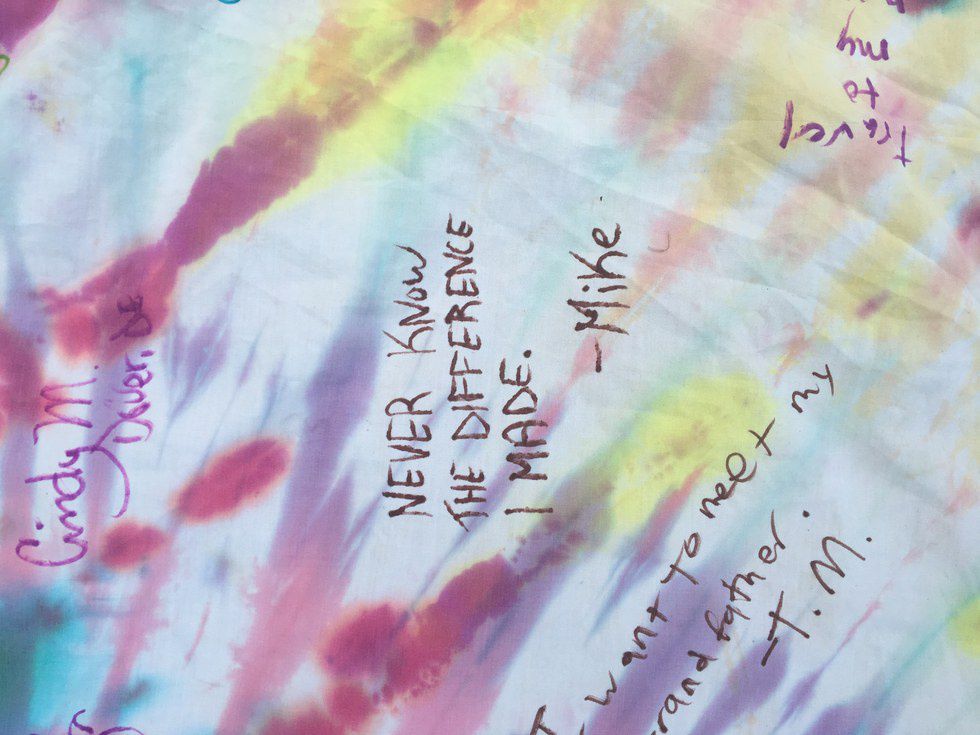 Cindy M.
Dover, DE
NEVER KNOW
THE DIFFERENCE
I MADE.
-Mike
I want to meet my
grand father.
-T.M.
travel
to
my